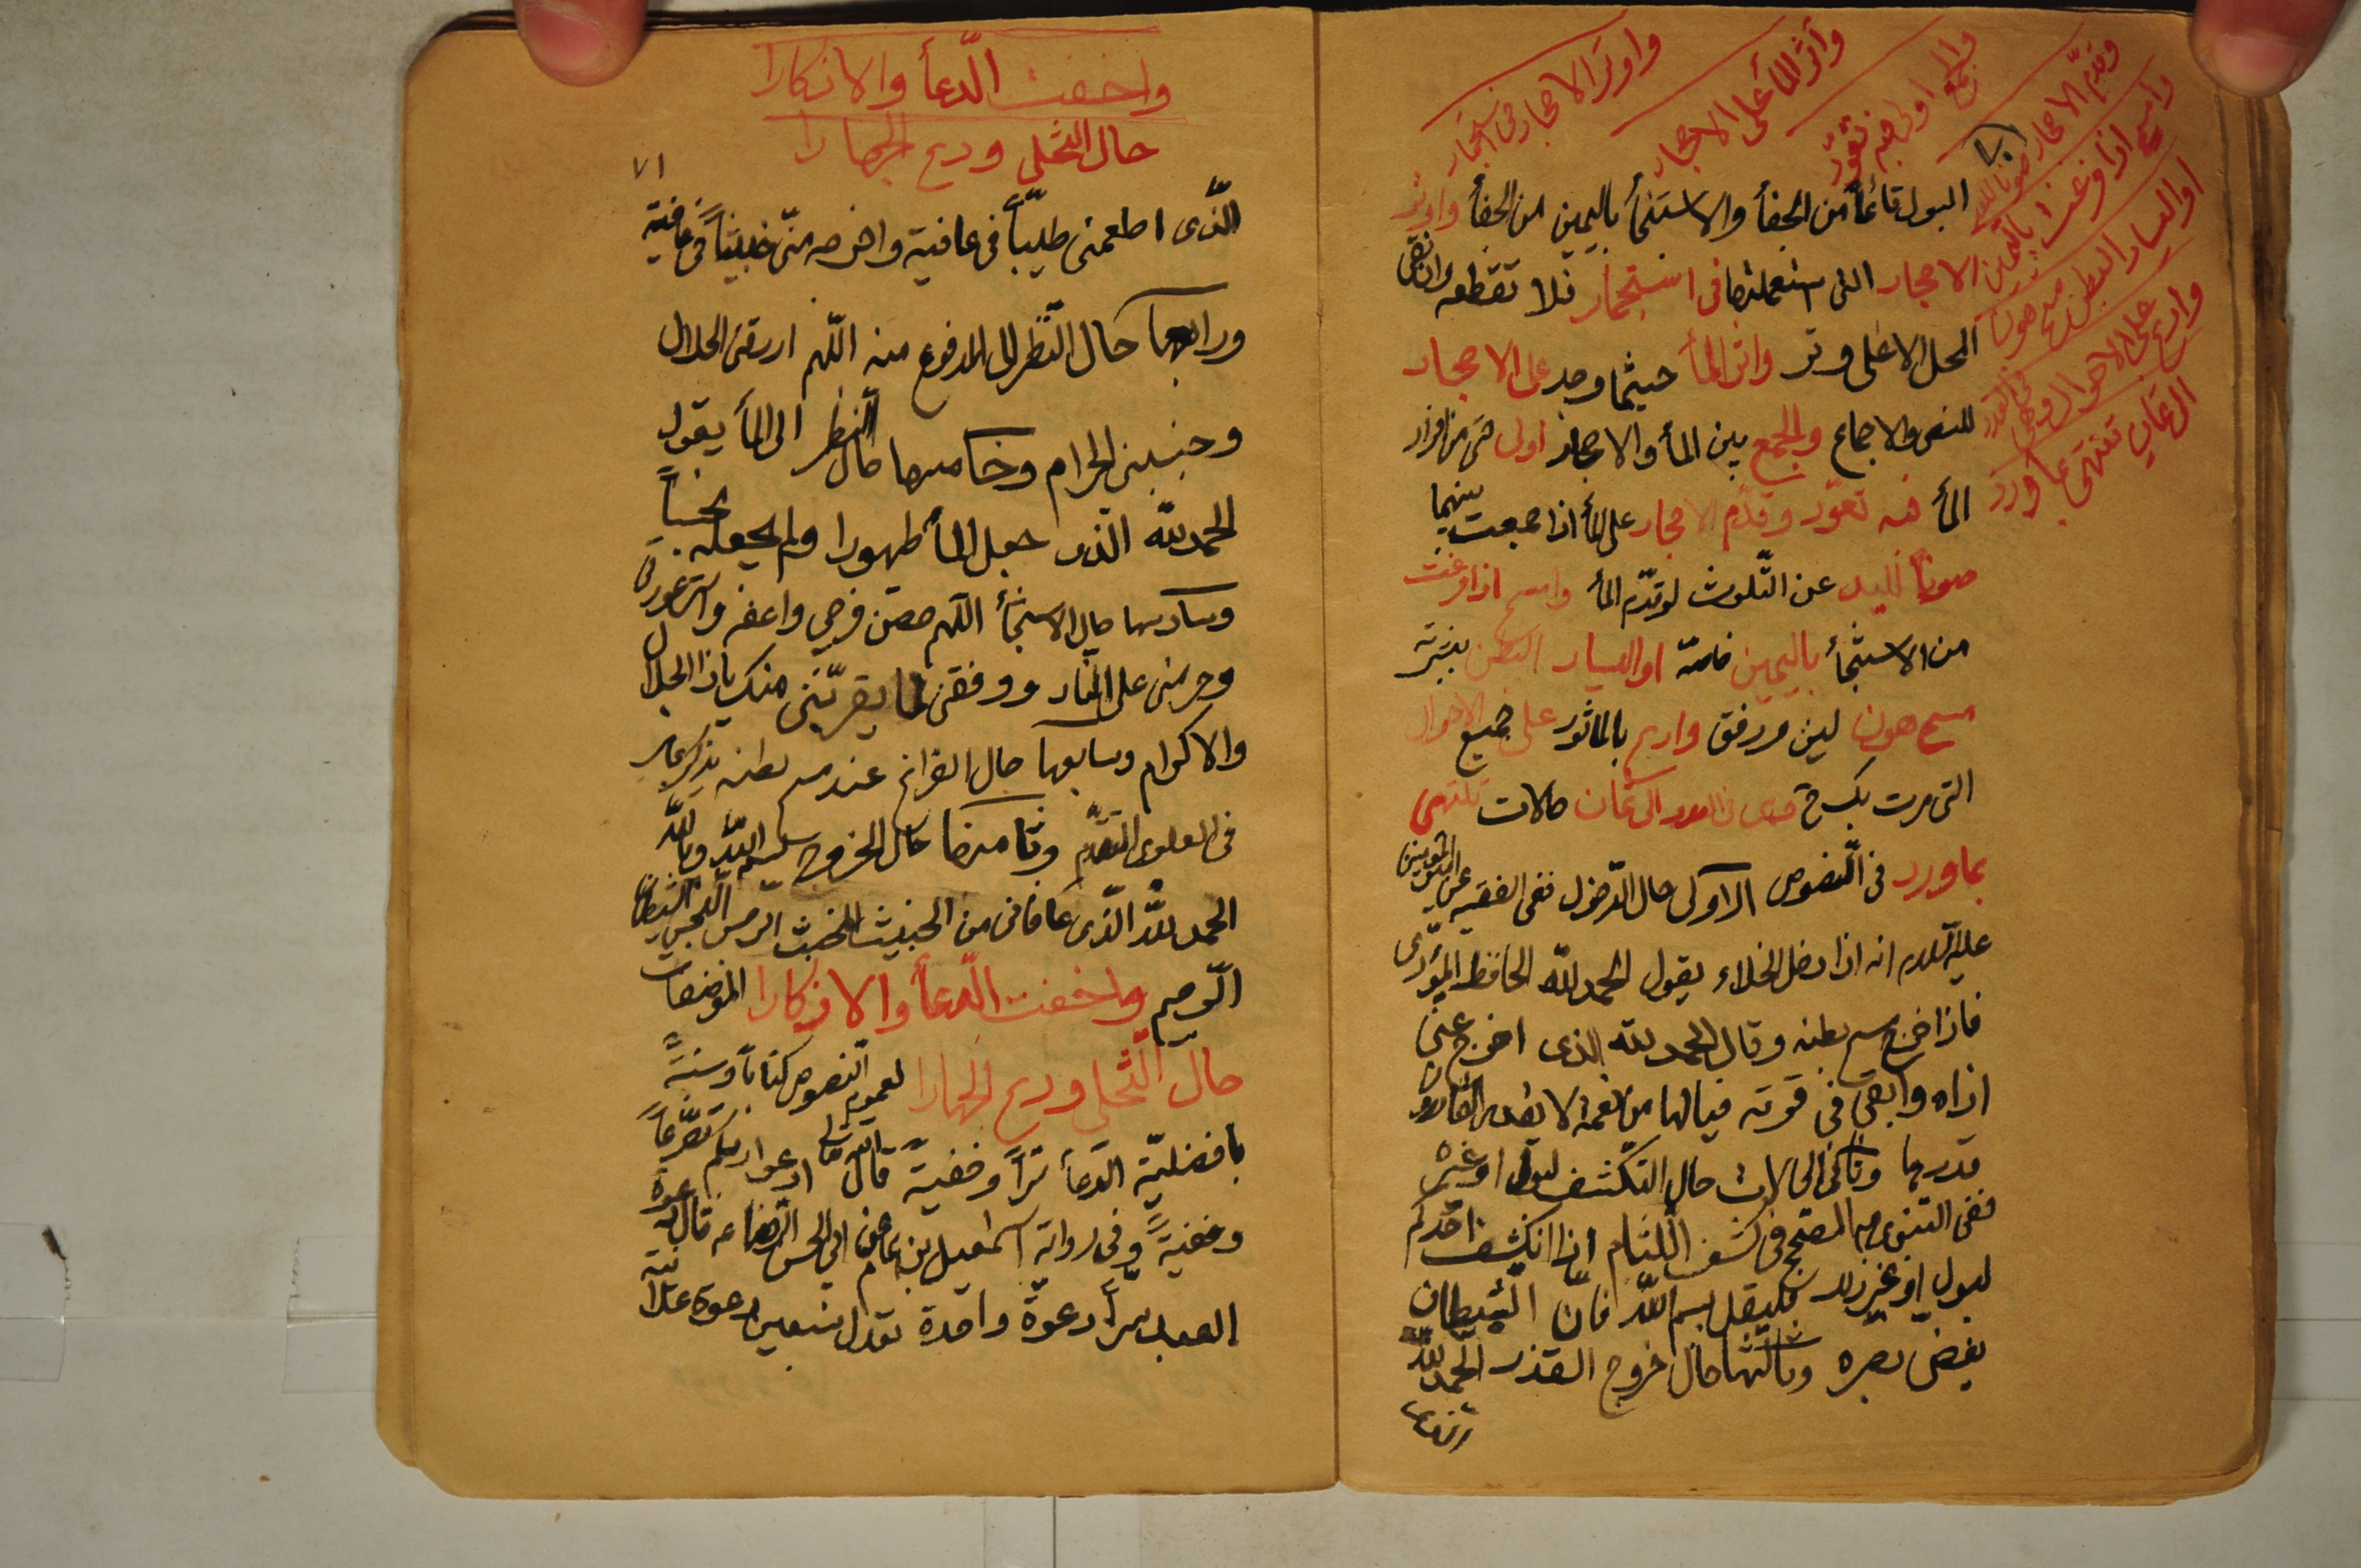 واوتر الاحجار فى استجمار
وأثر الماء على الاحجار
والجمع اولى فيه تعوّد
وقدّم الاحجار صونا لليد
وامسح اذا فرغت باليمين
او اليسار البطن مسح هون
وادع على الاحوال وهى فى العدد
الى ثمان تنتهى بما ورد
البول قائماً من الجفأ والاستنجأ باليمين من الجفأ واوتر
الاحجار التى استعملتها فى استجمار فلا تقطعه وان نقى
المحل الا على وتر واثر المأ حيثما وجد على الاحجار
للنص والاجماع والجمع بين المأ والاحجار اولى من افراد
المأ فيه تعوّد وقدّم الاحجار على المأ اذا جمعت بينهما
صونا لليد عن التّلوث لو تقدّم المأ وامسح اذا فرغت
من الاستنجأ باليمين خاصّة او اليسار البطن
مسح هون لين ورفق وادع بالماثور على جميع الاحوال
التى مرت بك وهى فى العدد الى ثمان حالات تنتهى
بما ورد فى النّصوص الاولى حال الدّخول ففى الفقيه عن امير المؤمنين
عليه السّلام انه اذا دخل الخلاء يقول الحمد للّه الحافظ المؤدى
فاذا خرج مسح بطنه وقال الحمد للّه الذى اخرج عنى
اذاه وابقى فى قوته فيالها من نعمة لا يقدر القادرون
قدرها وثانى الحالات حال التكشف لبول او غيره
ففى النبوى المصحح فى كشف اللثام اذا انكشف احدكم
لبول او غير ذلك فليقل بسم اللّه فانّ الشّيطان
يغض بصره وثالثها حال خروج القذر الحمد للّه
الذى
واخفت الدّعأ والاذكارا
حال التّخلى ودع الجهارا
٧١
الّذى اطعمنى طيّباً فى عافية واخرجه منّى خبيثاً فى عافية
ورابعها حال النّظر الى المدفوع منه اللّهم ارزقنى الحلال
وجنبنى الحرام وخامسها حال النظر الى المأ يقول
الحمد للّه الذى جعل المأ طهورا ولم يجعله نجساً
وسادسها حال الاستنجأ اللّهم حصّن فرجى واعفه واستر عورتى
وحرمنى على النار ووفقنى لما يقرّبنى منك ياذا الجلال
والاكرام وسابعها حال الفراغ عند مسح بطنه
فى العلوى المتقدّم وثامنها حال الخروج بسم اللّه وباللّه
الحمد للّه الّذى عافانى من الخبيث المخبث الرجس النّجس الشيطان
الرّجيم واخفت الدّعأ والاذكارا الموضفات
حال التّخلى ودع الجهارا لعموم النّصوص كتاباً وسنّةً
بافضليّة الدّعأ سرّاً وخفيةً قال اللّه تعالى ادعوا ربّكم تضرّعاً
وخفيةً وفى رواية اسمعيل بن همام عن ابى الحسن الرضا ع قال دعوة
العبد سرّاً دعوةً واحدة تعدل سبعين دعوة علانية